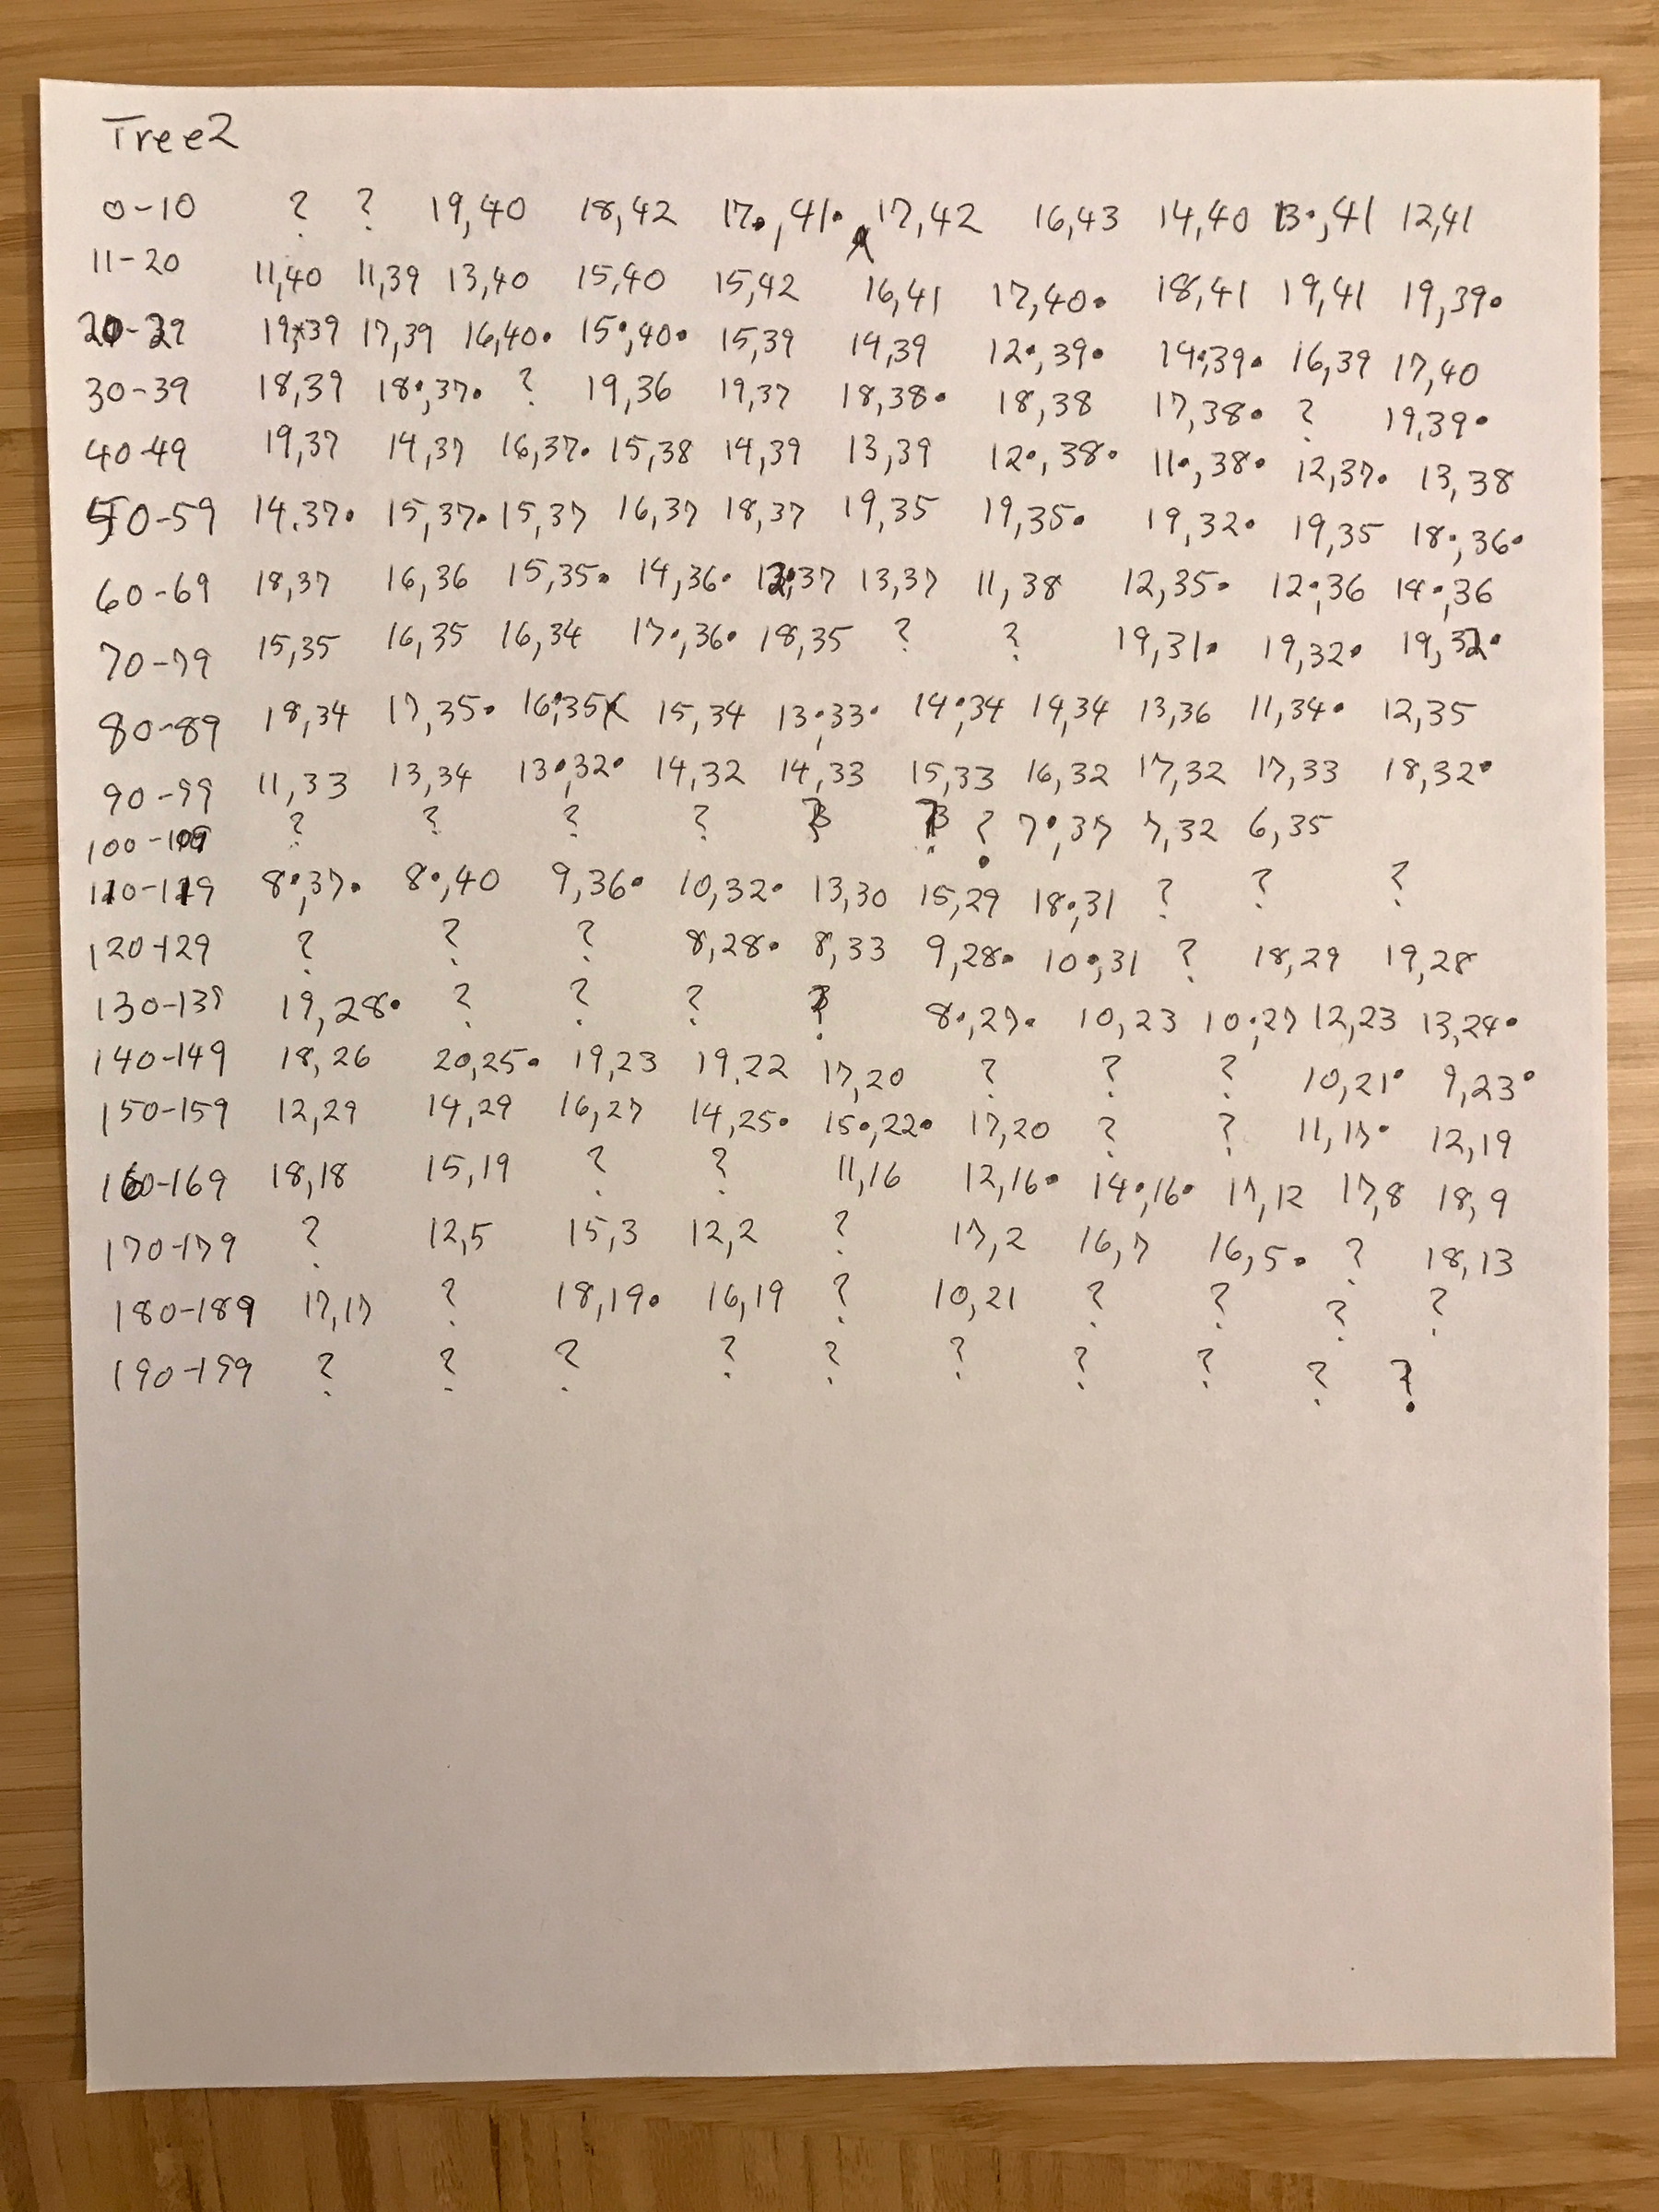 Tree2
0-10 ? ? 19,40 18,42 17•,41• 17,42 16,43 14,40 13•,41 12,41
11-20 11,40 11,39 13,40 15,40 15,42 16,41 17,40• 18,41 19,41 19,39•
20-29 19,39 17,39 16,40• 15•,40• 15,39 14,39 12•,39• 14•,39• 16,39 17,40
30-39 18,39 18•,37• ? 19,36 19,37 18,38• 18,38 17,38• ? 19,39•
40-49 19,37 14,37 16,37• 15,38 14,39 13,39 12•,38• 11•,38• 12,37• 13,38
50-59 14,37• 15,37• 15,37 16,37 18,37 19,35 19,35• 19,32• 19,35 18•,36•
60-69 18,37 16,36 15,35• 14,36• 12•,37 13,37 11,38 12,35• 12•,36 14•,36
70-79 15,35 16,35 16,34 17•,36• 18,35 ? ? 19,31• 19,32• 19,32•
80-89 18,34 17,35• 16•,35 15,34 13•,33• 14•,34 14,34 13,36 11,34• 12,35
90-99 11,33 13,34 13•,32• 14,32 14,33 15,33 16,32 17,32 17,33 18,32•
100-109 ? ? ? ? ? ? ? 7•,37 7,32 6,35
110-119 8•,37• 8•,40 9,36• 10,32• 13,30 15,29 18•,31 ? ? ?
120-129 ? ? ? 8,28• 8,33 9,28• 10•,31 ? 18,29 19,28
130-139 19,28• ? ? ? ? 8•,27• 10,23 10•,27 12,23 13,24•
140-149 18,26 20,25• 19,23 19,22 17,20 ? ? ? 10,21• 9,23•
150-159 12,29 14,29 16,27 14,25• 15•,22• 17,20 ? ? 11,17• 12,19
160-169 18,18 15,19 ? ? 11,16 12,16• 14•,16• 17,12 17,8 18,9
170-179 ? 12,5 15,3 12,2 ? 17,2 16,7 16,5• ? 18,13
180-189 17,17 ? 18,19• 16,19 ? 10,21 ? ? ? ?
190-199 ? ? ? ? ? ? ? ? ? ?